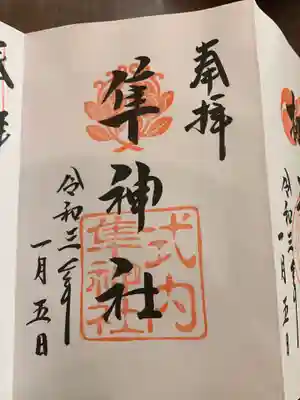 奉拝
隼神社
式内
隼神社
令和三年
一月五日